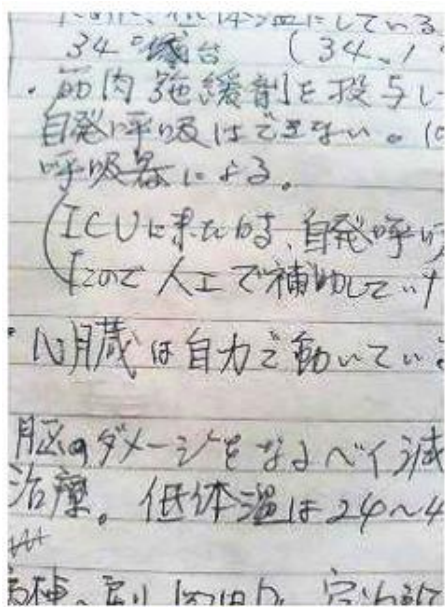 に、低体温にしている
34℃台 (34.1
・筋肉弛緩剤を投与し
自発呼吸はできない。(
呼吸器による。
(ICUに来た時、自発呼吸
ので人工で補助してい
・心臓は自力で動いてい
脳のダメージをなるべく減
治療。低体温は24〜4